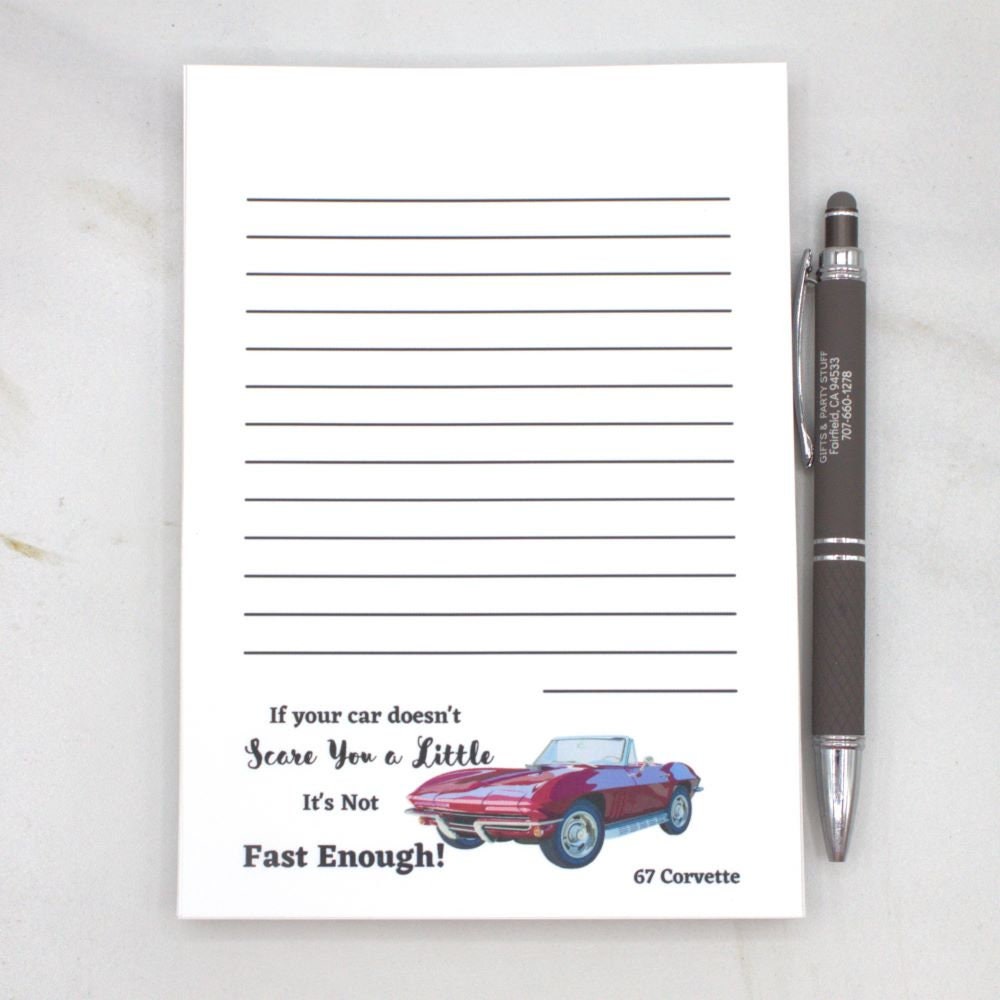 If your car doesn't
Scare You a Little
It's Not
Fast Enough!
67 Corvette
GIFTS & PARTY STUFF
Fairfield, CA 94533
707-660-1278